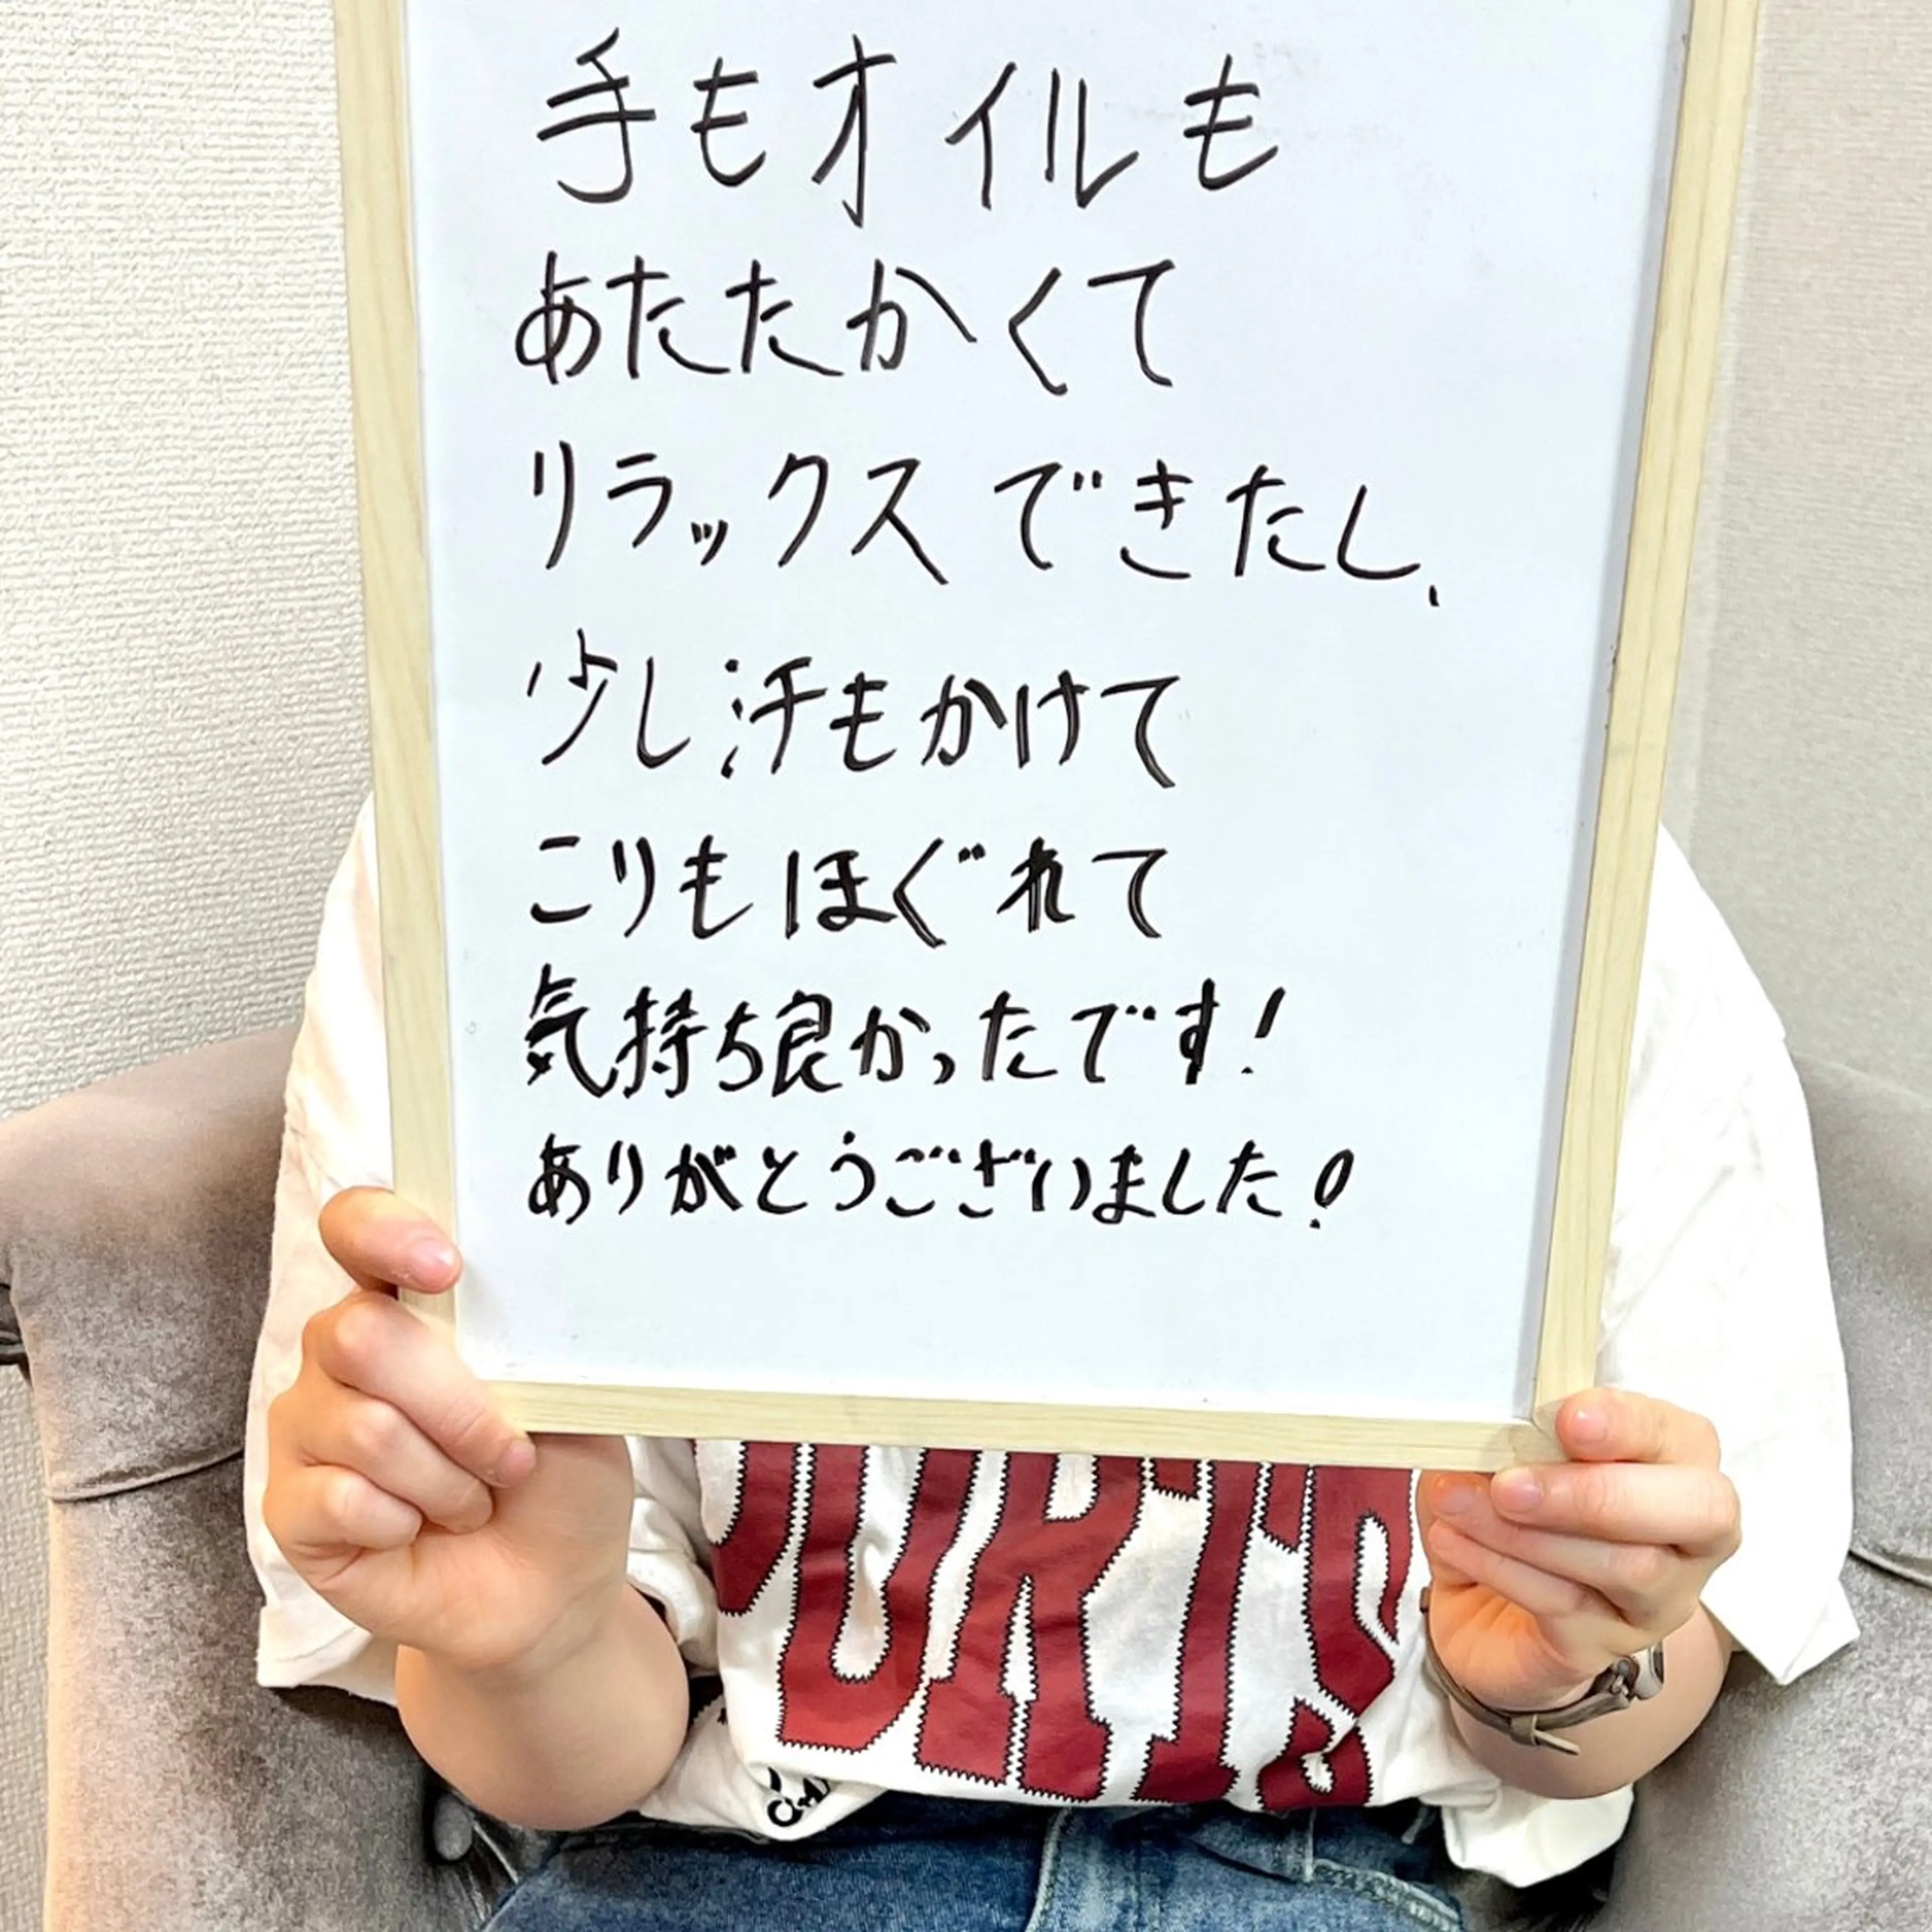 手もオイルも
あたたかくて
リラックスできたし、
少し汗もかけて
こりもほぐれて
気持ち良かったです!
ありがとうございました!